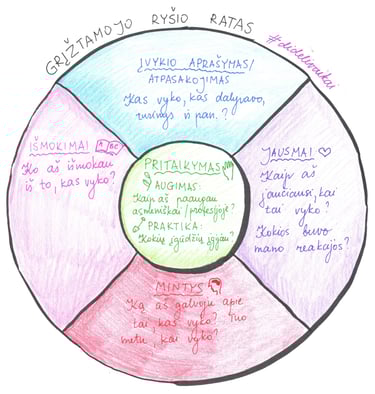 GRĮŽTAMOJO RYŠIO RATAS
#dideliivaikai
ĮVYKIO APRAŠYMAS/
ATPASAKOJIMAS
Kas vyko, kas dalyvavo,
rusings ir pan.?
IŠMOKIMAI
Ko aš išmokau
iš to, kas vyko?
PRITAIKYMAS
AUGIMAS:
Kaip aš paaugau
asmeniškai/profesijoje?
PRAKTIKA:
Kokių įgūdžių įgijau?
JAUSMAI
Kaip aš
jaučiausi, kai
tai vyko?
Kokios buvo
mano reakcijos?
MINTYS
Ką aš galvoju apie
tai, kas vyko? Tuo
metu, kai vyko?